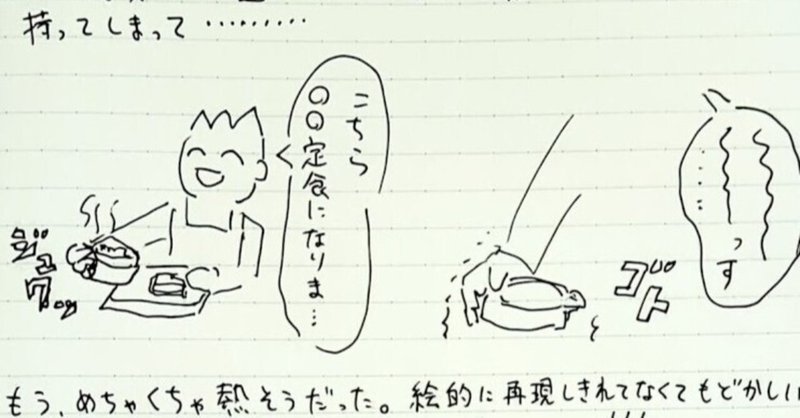 持ってしまって………
こちら
〇〇定食になりま…
ジュワッ
……っす
ゴト
もう、めちゃくちゃ熱そうだった。絵的に再現しきれてなくてもどかしい